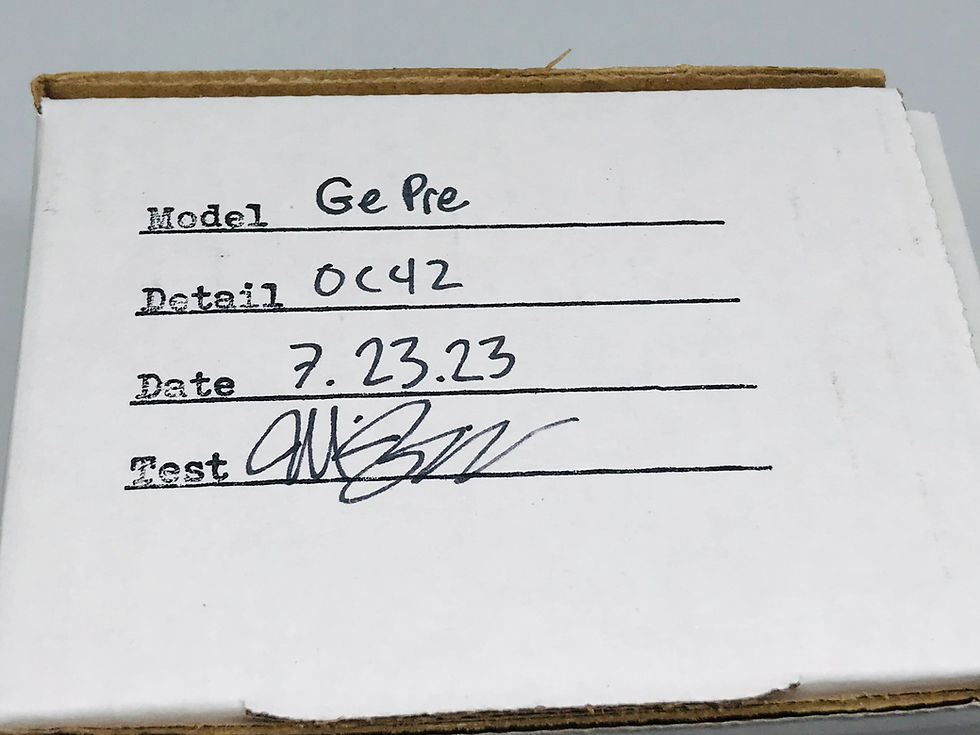 Model Ge Pre
Detail OC42
Date 7.23.23
Test